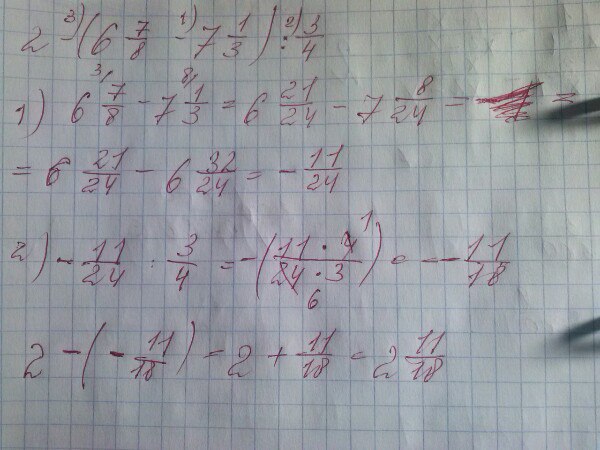 2 -³⁾ (6 7/8 -¹⁾ 7 1/3) :²⁾ 3/4
1) 6 7/8 ³⁄ - 7 1/3 ⁸⁄ = 6 21/24 - 7 8/24 = =
= 6 21/24 - 6 32/24 = - 11/24
2) - 11/24 : 3/4 = -(11 · 4 1/24 · 3 6) = - 11/18
2 - (- 11/18) = 2 + 11/18 = 2 11/18